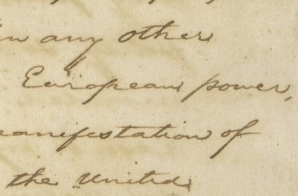 in any other
European power,
manifestation of
the United